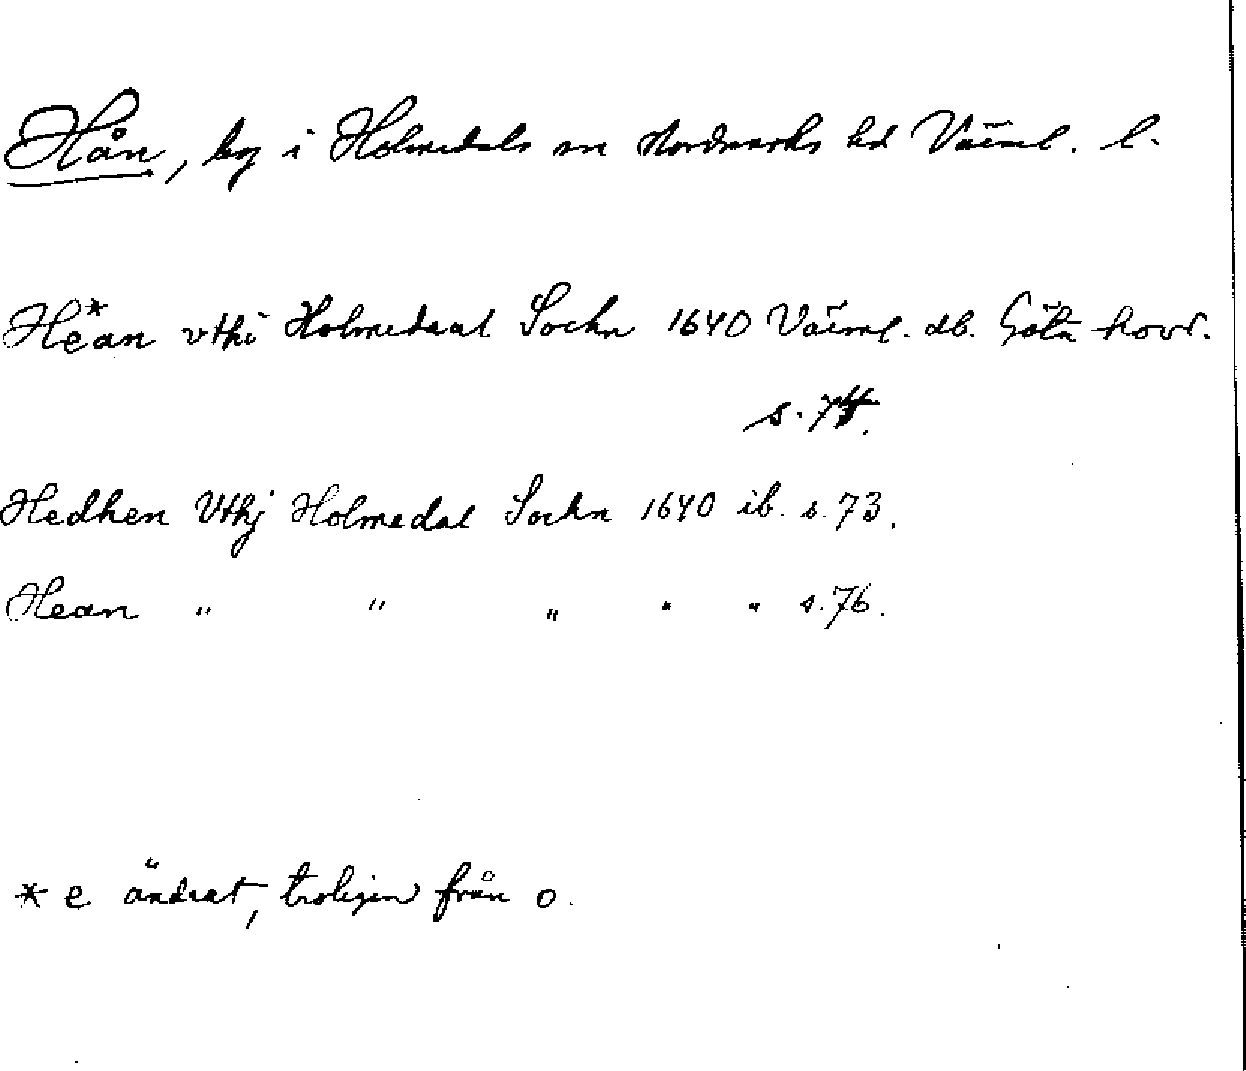 Hån, by i Holmedals sn Nordmarks hd Värml. l.
Hëan* vthi Holmedaal Sockn 1640 Värml. db. Göta hovr.
s.
Hedhen Vthj Holmedal Sockn 1640 ib. s. 73.
Hean " " " " " s. 76.
* e ändrat, troligen från o.